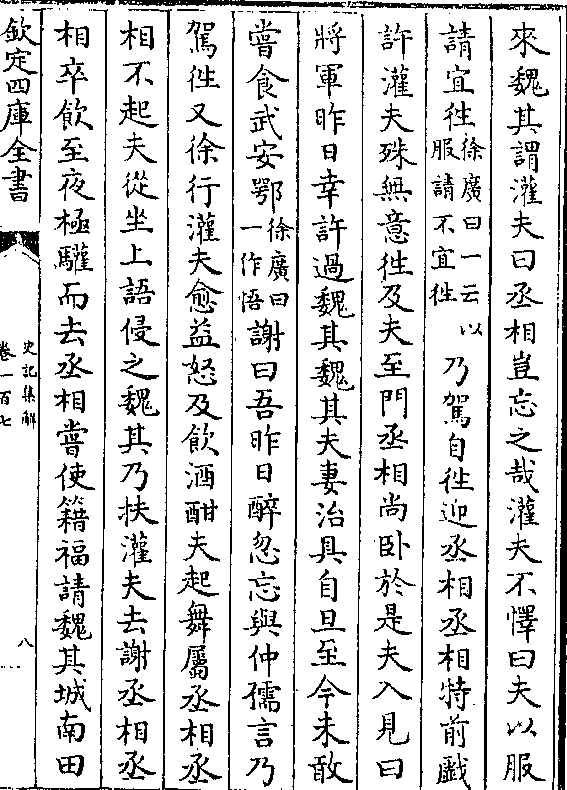 來魏其謂灌夫曰丞相豈忘之哉灌夫不懌曰夫以服
請宜徃徐廣曰一云以服請不宜徃乃駕自徃迎丞相丞相特前戲
許灌夫殊無意徃及夫至門丞相尚卧於是夫入見曰
將軍昨日幸許過魏其魏其夫妻治具自旦至今未敢
嘗食武安鄂徐廣曰一作悟謝曰吾昨日醉忽忘與仲孺言乃
駕徃又徐行灌夫愈益怒及飲酒酣夫起舞屬丞相丞
相不起夫從坐上語侵之魏其乃扶灌夫去謝丞相丞
相卒飲至夜極驩而去丞相嘗使籍福請魏其城南田
欽定四庫全書
史記集解
卷一百七
八